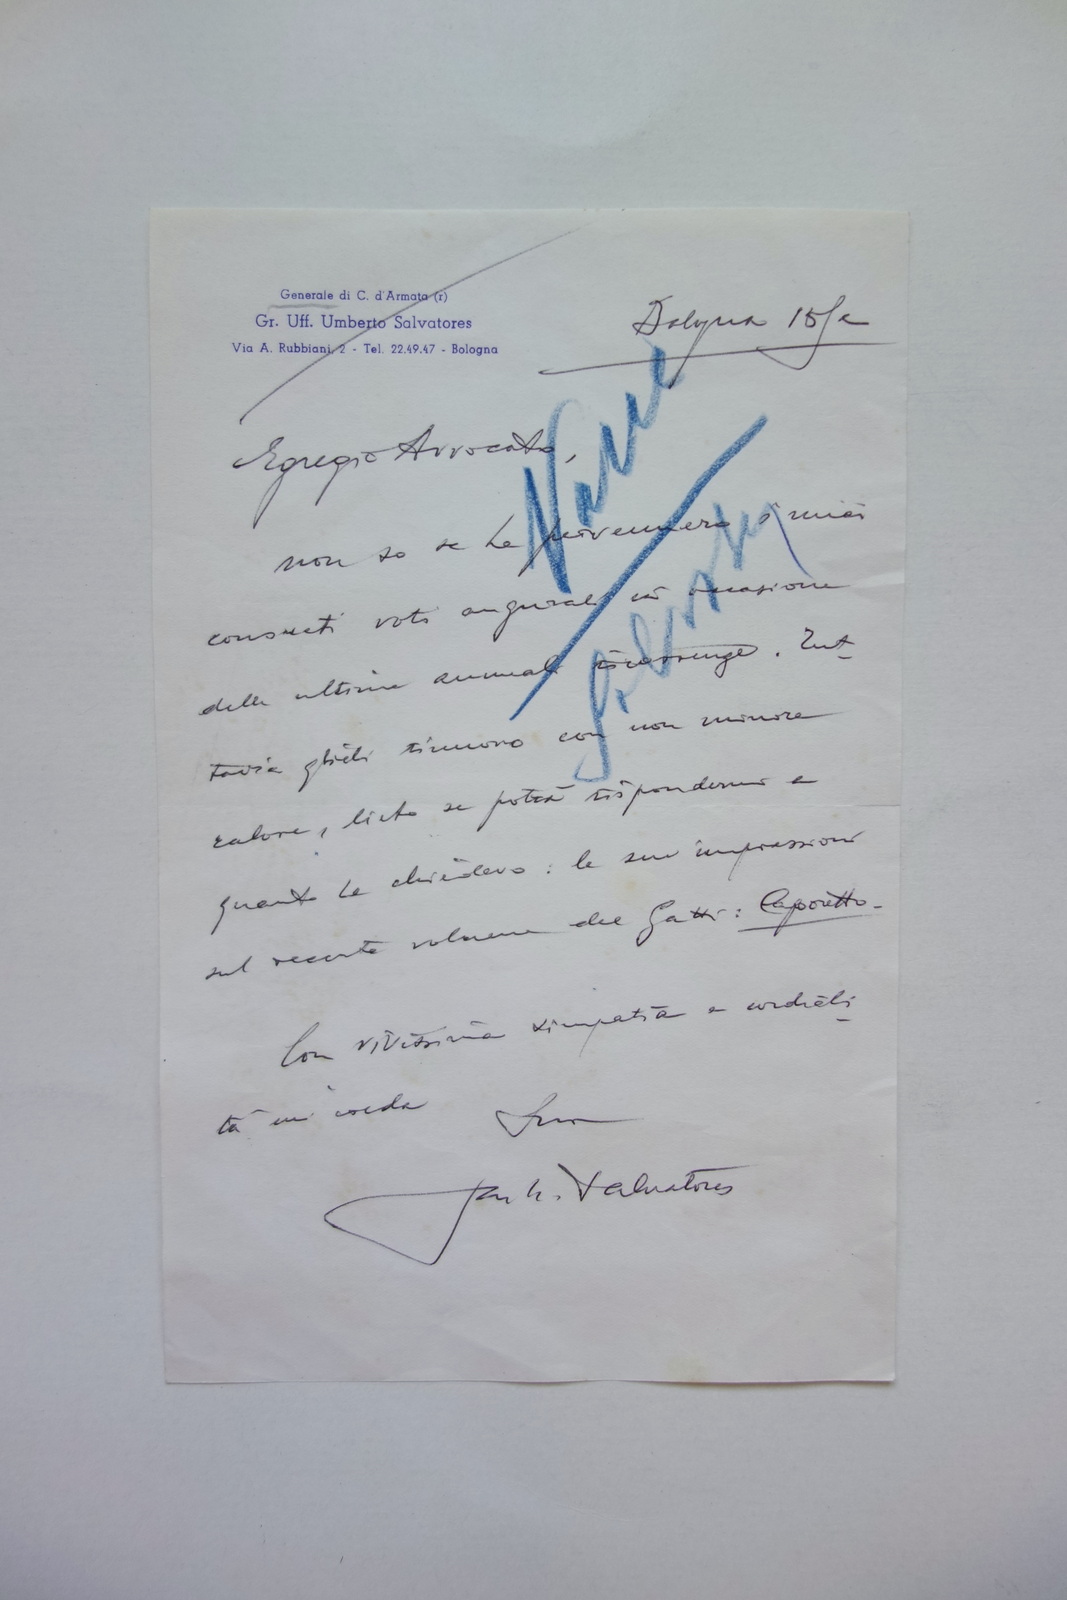 Generale di C. d'Armata (r)
Gr. Uff. Umberto Salvatores
Via A. Rubbiani, 2 - Tel. 22.49.47 - Bologna
Bologna 15/
Egregio Avvocato,
non so se Le pervennero i miei
consueti voti augurali in occasione
delle ultime annuali ricorrenze. Tut-
tavia glieli rinnovo con non minore
calore, lieto se potrà rispondermi a
quanto Le chiedevo: le sue impressioni
sul recente volume del Gatti: Caporetto.
Con vivissima simpatia e cordiali-
tà mi creda Suo
Salvatores